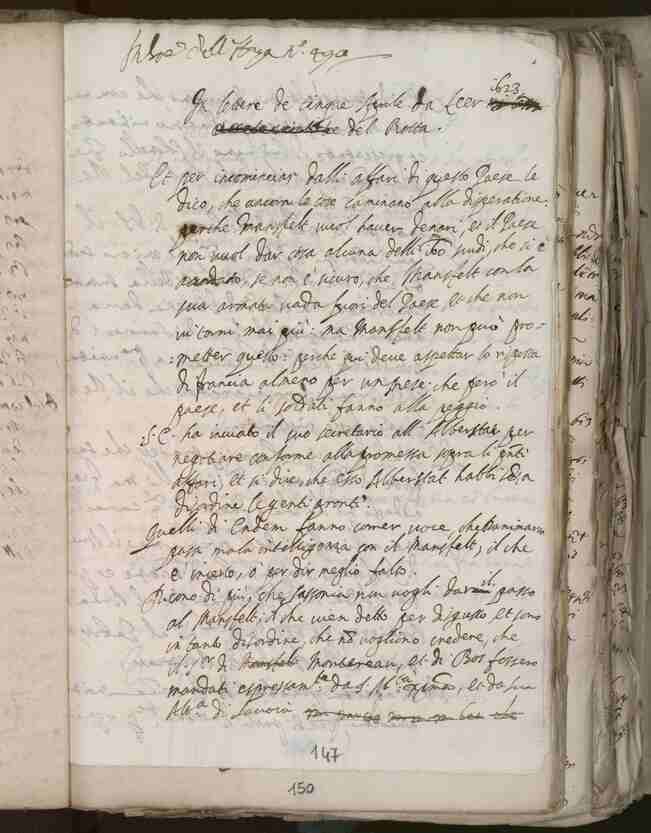 dell' Haya
1623
In lettere de cinque Aprile da Leer
del Rotta.
Et per incominciar dalli affari di questo Paese le
dico, che ancora le cose caminano alla disperatione:
perche Mansfelt vuol haver denari, et il Paese
non vuol dar cosa alcuna delli scudi, che si è
se non è sicuro, che Mansfelt con la
sua armata vada fuori del Paese, et che non
vi torni mai più: ma Mansfelt non può pro-
=metter questo: perche qui deve aspettar la risposta
di francia almeno per un mese. che però il
paese, et li soldati fanno alla peggio.
S. E. ha inviato il suo secretario all' Alberstat per
negotiare conforme alla promessa sopra li
affari, et si dice, che esso Alberstat habbi
disordine le genti pronte.
Quelli di Endem fanno correr voce, che
passa mala intelligenza con il Mansfelt, il che
è incerto, o per dir meglio falso.
Dicono di più, che Sassonia non vogli dar il passo
al Mansfelt; il che vien detto per disgusto et sono
in tanto disordine, che nō vogliono credere, che
di Montereau, et di Bos fossero
mandati espressam.te da S. M.tà et da sua
Alt.a di Savoia
147
150